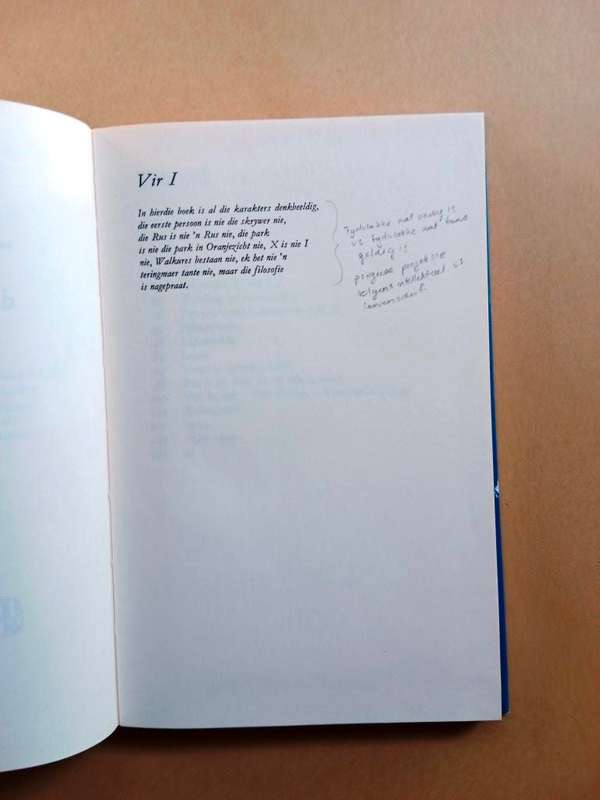 Vir I
In hierdie boek is al die karakters denkbeeldig,
die eerste persoon is nie die skrywer nie,
die Rus is nie 'n Rus nie, die park
is nie die park in Oranjezicht nie, X is nie I
nie, Walkures bestaan nie, ek het nie 'n
teringmaer tante nie, maar die filosofie
is nagepraat.
tydvlakke wat
vs tydvlakke wat
geldig is
vs